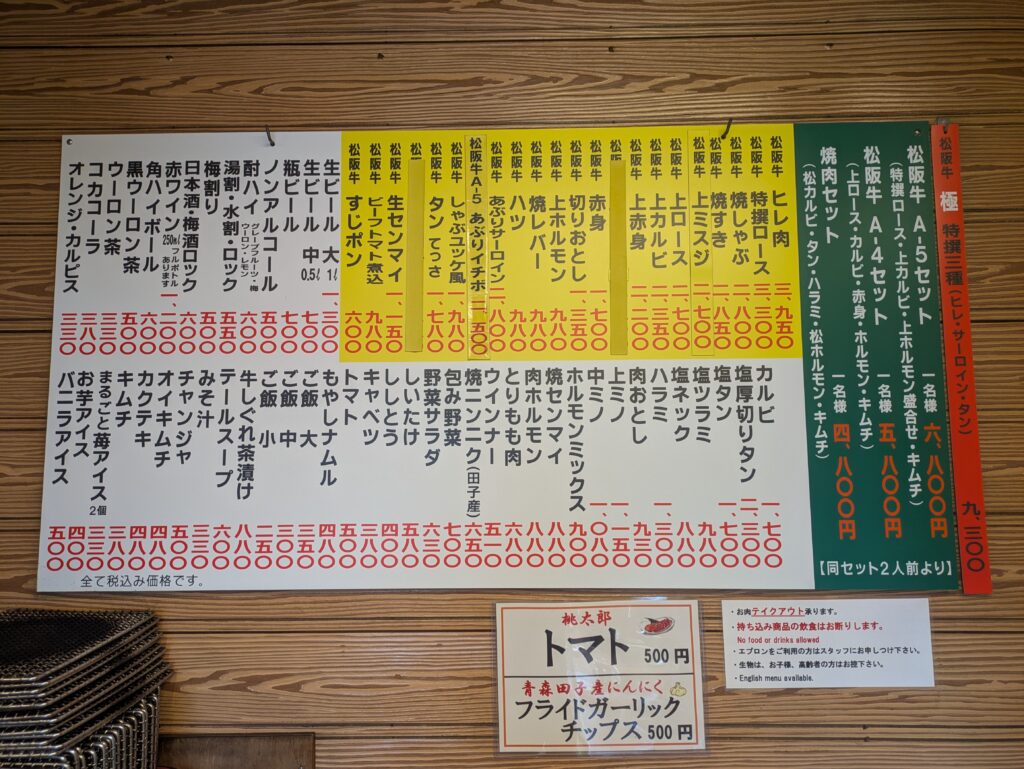 松阪牛 極 特撰三種(ヒレ・サーロイン・タン) 九、三〇〇
松阪牛 A-5セット 一名様 六、八〇〇円
(特撰ロース・上カルビ・上ホルモン盛合せ・キムチ)
松阪牛 A-4セット 一名様 五、八〇〇円
(上ロース・カルビ・赤身・ホルモン・キムチ)
焼肉セット 一名様 四、八〇〇円
(松カルビ・タン・ハラミ・松ホルモン・キムチ)
【同セット2人前より】
松阪牛 ヒレ肉 三、九五〇
松阪牛 特撰ロース 三、三〇〇
松阪牛 焼しゃぶ 二、八〇〇
松阪牛 焼すき 二、八五〇
松阪牛 上ミスジ
松阪牛 上ロース
松阪牛 上カルビ 二、二〇〇
松阪牛 上赤身
松阪牛 赤身 一、七〇〇
松阪牛 切りおとし 一、三五〇
松阪牛 上ホルモン 九八〇
松阪牛 焼レバー 九八〇
松阪牛 ハツ 八〇〇
松阪牛 あぶりサーロイン
松阪牛A-5 あぶりイチボ 一、五〇〇
松阪牛 しゃぶユッケ風
松阪牛 タン てっさ 一、七八〇
松阪牛 生センマイ 一、一五〇
松阪牛 ビーフトマト煮込 九八〇
松阪牛 すじポン 六〇〇
生ビール 大 1ℓ 一、三〇〇
生ビール 中 0.5ℓ 七〇〇
瓶ビール 七〇〇
ノンアルコール 五〇〇
酎ハイ グレープフルーツ・梅 ウーロン・レモン 五〇〇
湯割・水割・ロック 五五〇
梅割り 五〇〇
日本酒・梅酒ロック 六〇〇
赤ワイン 250㎖ フルボトルあります 一、二〇〇
角ハイボール 六〇〇
黒ウーロン茶 五〇〇
ウーロン茶
コカコーラ 三八〇
オレンジ・カルピス 三三〇
カルビ 一、七〇〇
塩厚切りタン
塩タン 一、七〇〇
塩ツラミ 九八〇
塩ネック 八八〇
ハラミ
肉おとし 九三〇
上ミノ 一、一五〇
中ミノ 一、〇〇〇
ホルモンミックス
焼センマイ 八八〇
肉ホルモン 八八〇
とりもも肉
ウインナー 五五〇
焼ニンニク(田子産) 六五〇
包み野菜
野菜サラダ 六三〇
しいたけ 五五〇
ししとう 四〇〇
キャベツ
トマト
もやしナムル 四八〇
ご飯 大
ご飯 中
ご飯 小
牛しぐれ茶漬け
テールスープ
みそ汁
チャンジャ 五五〇
オイキムチ 四八〇
カクテキ 四八〇
キムチ 三八〇
まるごと苺アイス 2個
お芋アイス 四〇〇
バニラアイス 五〇〇
全て税込み価格です。
桃太郎
トマト 500円
青森田子産にんにく
フライドガーリック
チップス 500円
・お肉テイクアウト承ります。
・持ち込み商品の飲食はお断りします。
No food or drinks allowed
・エプロンをご利用の方はスタッフにお申しつけ下さい。
・生物は、お子様、高齢者の方はお控下さい。
・English menu available.